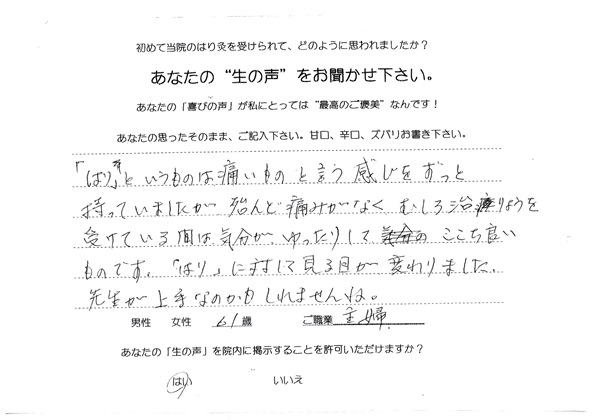 初めて当院のはり灸を受けられて、どのように思われましたか？
あなたの“生の声”をお聞かせ下さい。
あなたの「喜びの声」が私にとっては“最高のご褒美”なんです！
あなたの思ったそのまま、ご記入下さい。甘口、辛口、ズバリお書き下さい。
「はり」というものは痛いものと言う感じをずっと
持っていましたが殆んど痛みがなくむしろ治りょうを
受けている間は気分がゆったりしてここち良い
ものです。「はり」に対して見る目が変わりました、
先生が上手なのかもしれませんね。
男性 女性 61歳 ご職業 主婦
あなたの「生の声」を院内に掲示することを許可いただけますか？
はい いいえ